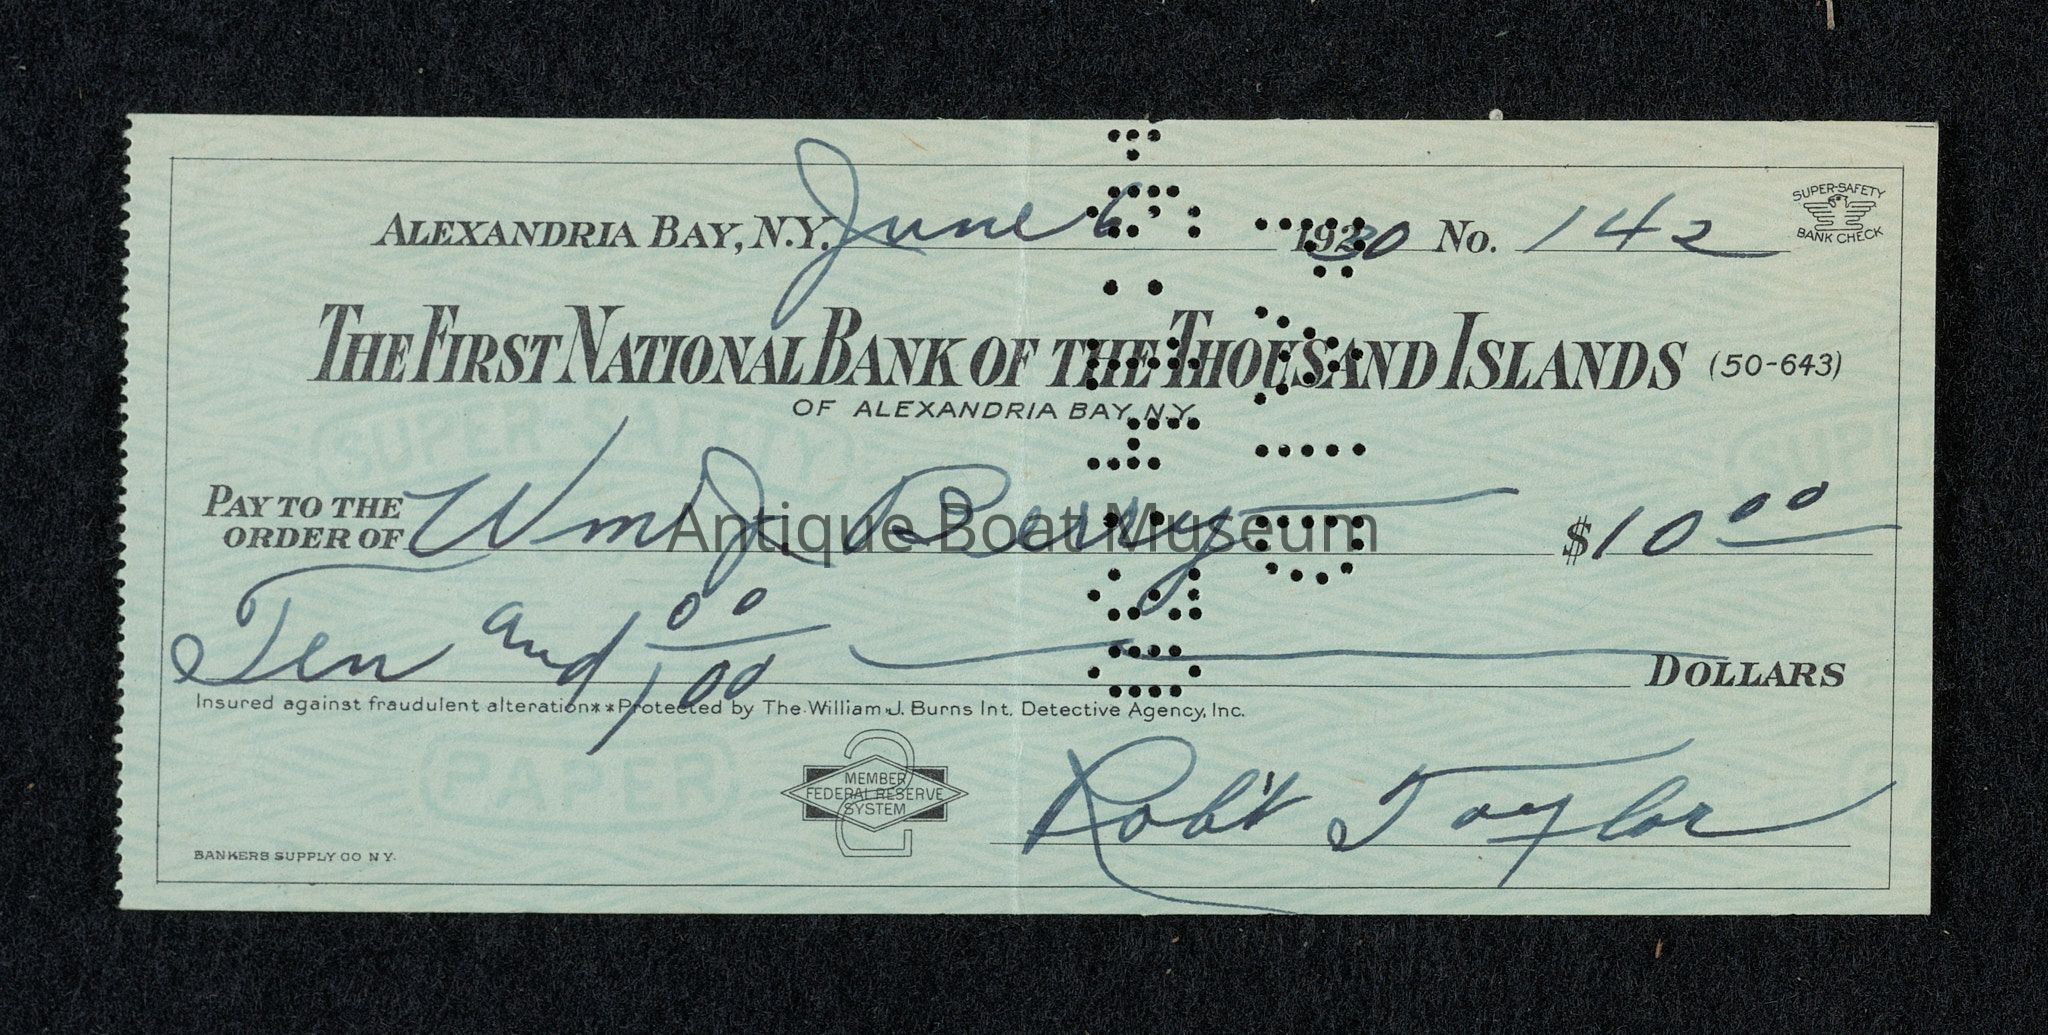 SUPER-SAFETY
BANK CHECK
ALEXANDRIA BAY, N.Y. June 6 1930 No. 142
THE FIRST NATIONAL BANK OF THE THOUSAND ISLANDS (50-643)
OF ALEXANDRIA BAY, N.Y.
SUPER-SAFETY
PAY TO THE
ORDER OF Wm J. Berry $10 00
Antique Boat Museum
Ten and 00/100 DOLLARS
Insured against fraudulent alteration**Protected by The William J. Burns Int. Detective Agency, Inc.
PAPER
MEMBER
FEDERAL RESERVE
SYSTEM
Rob't Taylor
BANKERS SUPPLY CO N.Y.